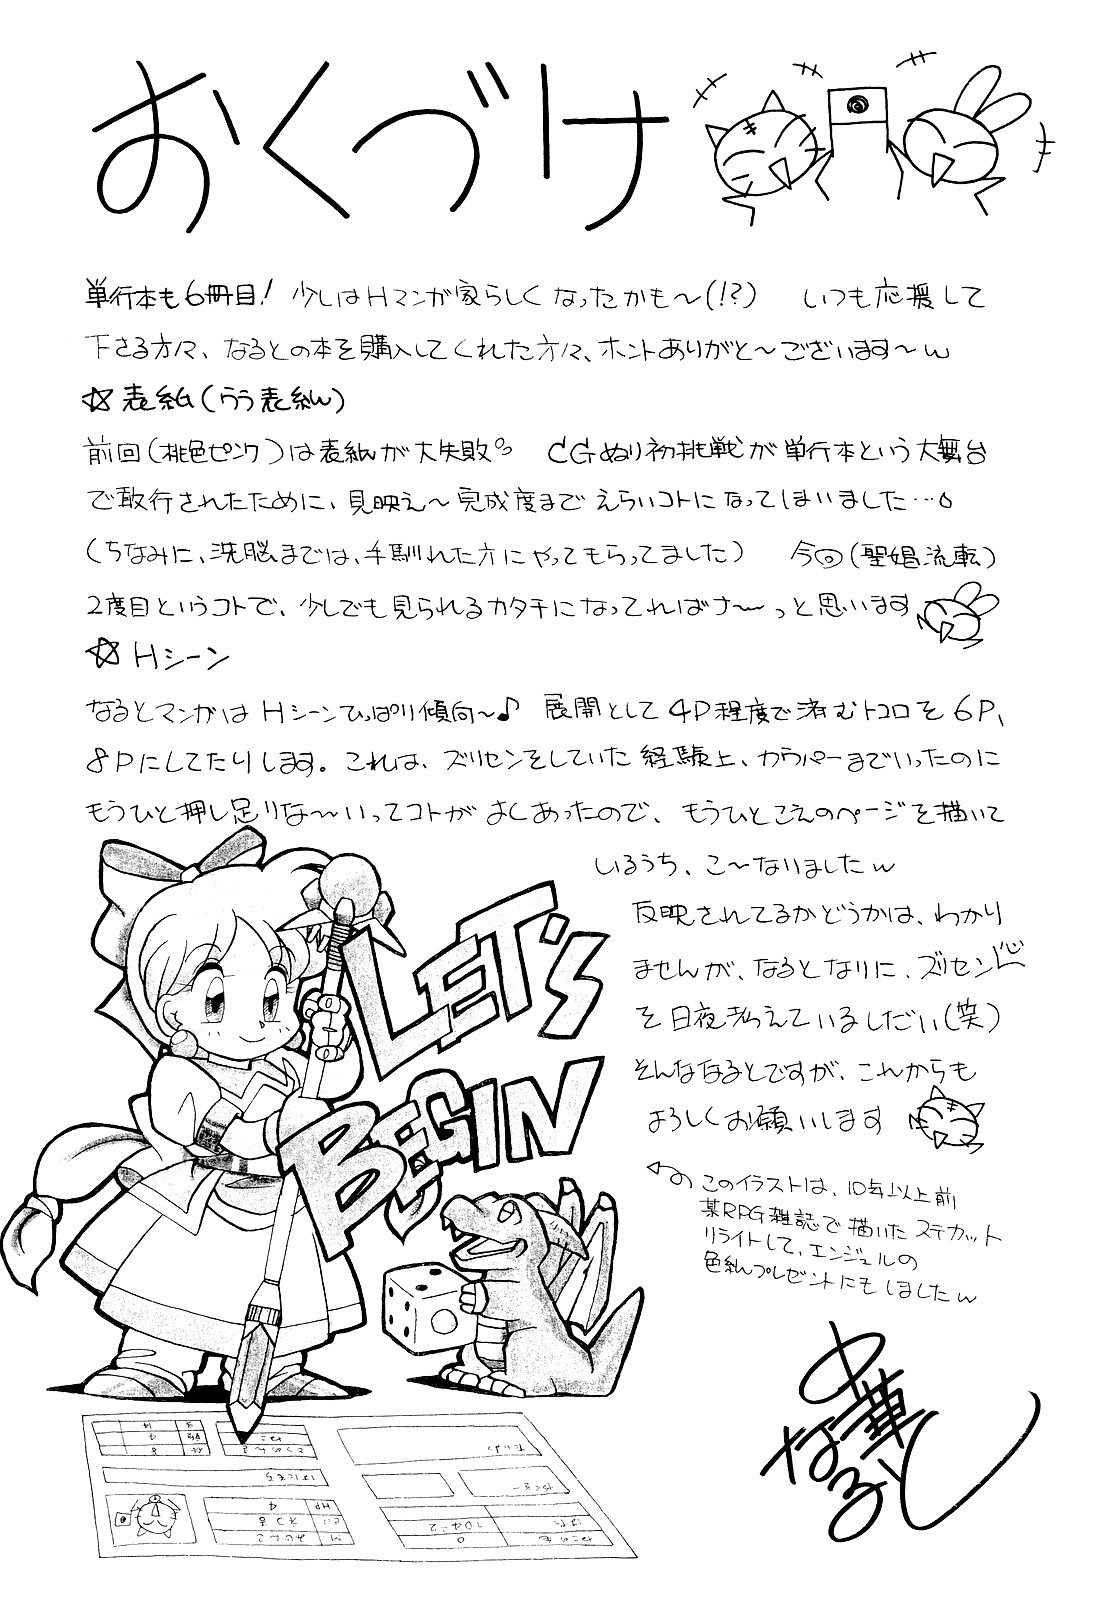 おくづけ
単行本も6冊目! 少しはHマンガ家らしくなったかも〜(!?) いつも応援して
下さる方々、なるとの本を購入してくれた方々、ホントありがと〜ございます〜w
☆表紙(うう表紙)
前回(桃色ピンク)は表紙が大失敗 CGぬり初挑戦が単行本という大舞台
で敢行されたために、見映え〜完成度までえらいコトになってしまいました…
(ちなみに、洗脳までは、手馴れた方にやってもらってました) 今回(聖娼流転)
2度目というコトで、少しでも見られるカタチになってればナ〜っと思います
☆Hシーン
なるとマンガはHシーンひっぱり傾向〜♪ 展開として4P程度で済むトコロを6P、
8Pにしてたりします。これは、ズリセンをしていた経験上、カウパーまでいったのに
もうひと押し足りな〜いってコトがよくあったので、もうひとこえのページを描いて
いるうち、こ〜なりましたw
反映されてるかどうかは、わかり
ませんが、なるとなりに、ズリセン
を日夜考えているしだい(笑)
そんななるとですが、これからも
よろしくお願いします
このイラストは、10年以上前
某RPG雑誌で描いたステカット
リライトして、エンジェルの
色紙プレゼントにもしましたw
LET'S
BEGIN
中華
なると
HP
4
0